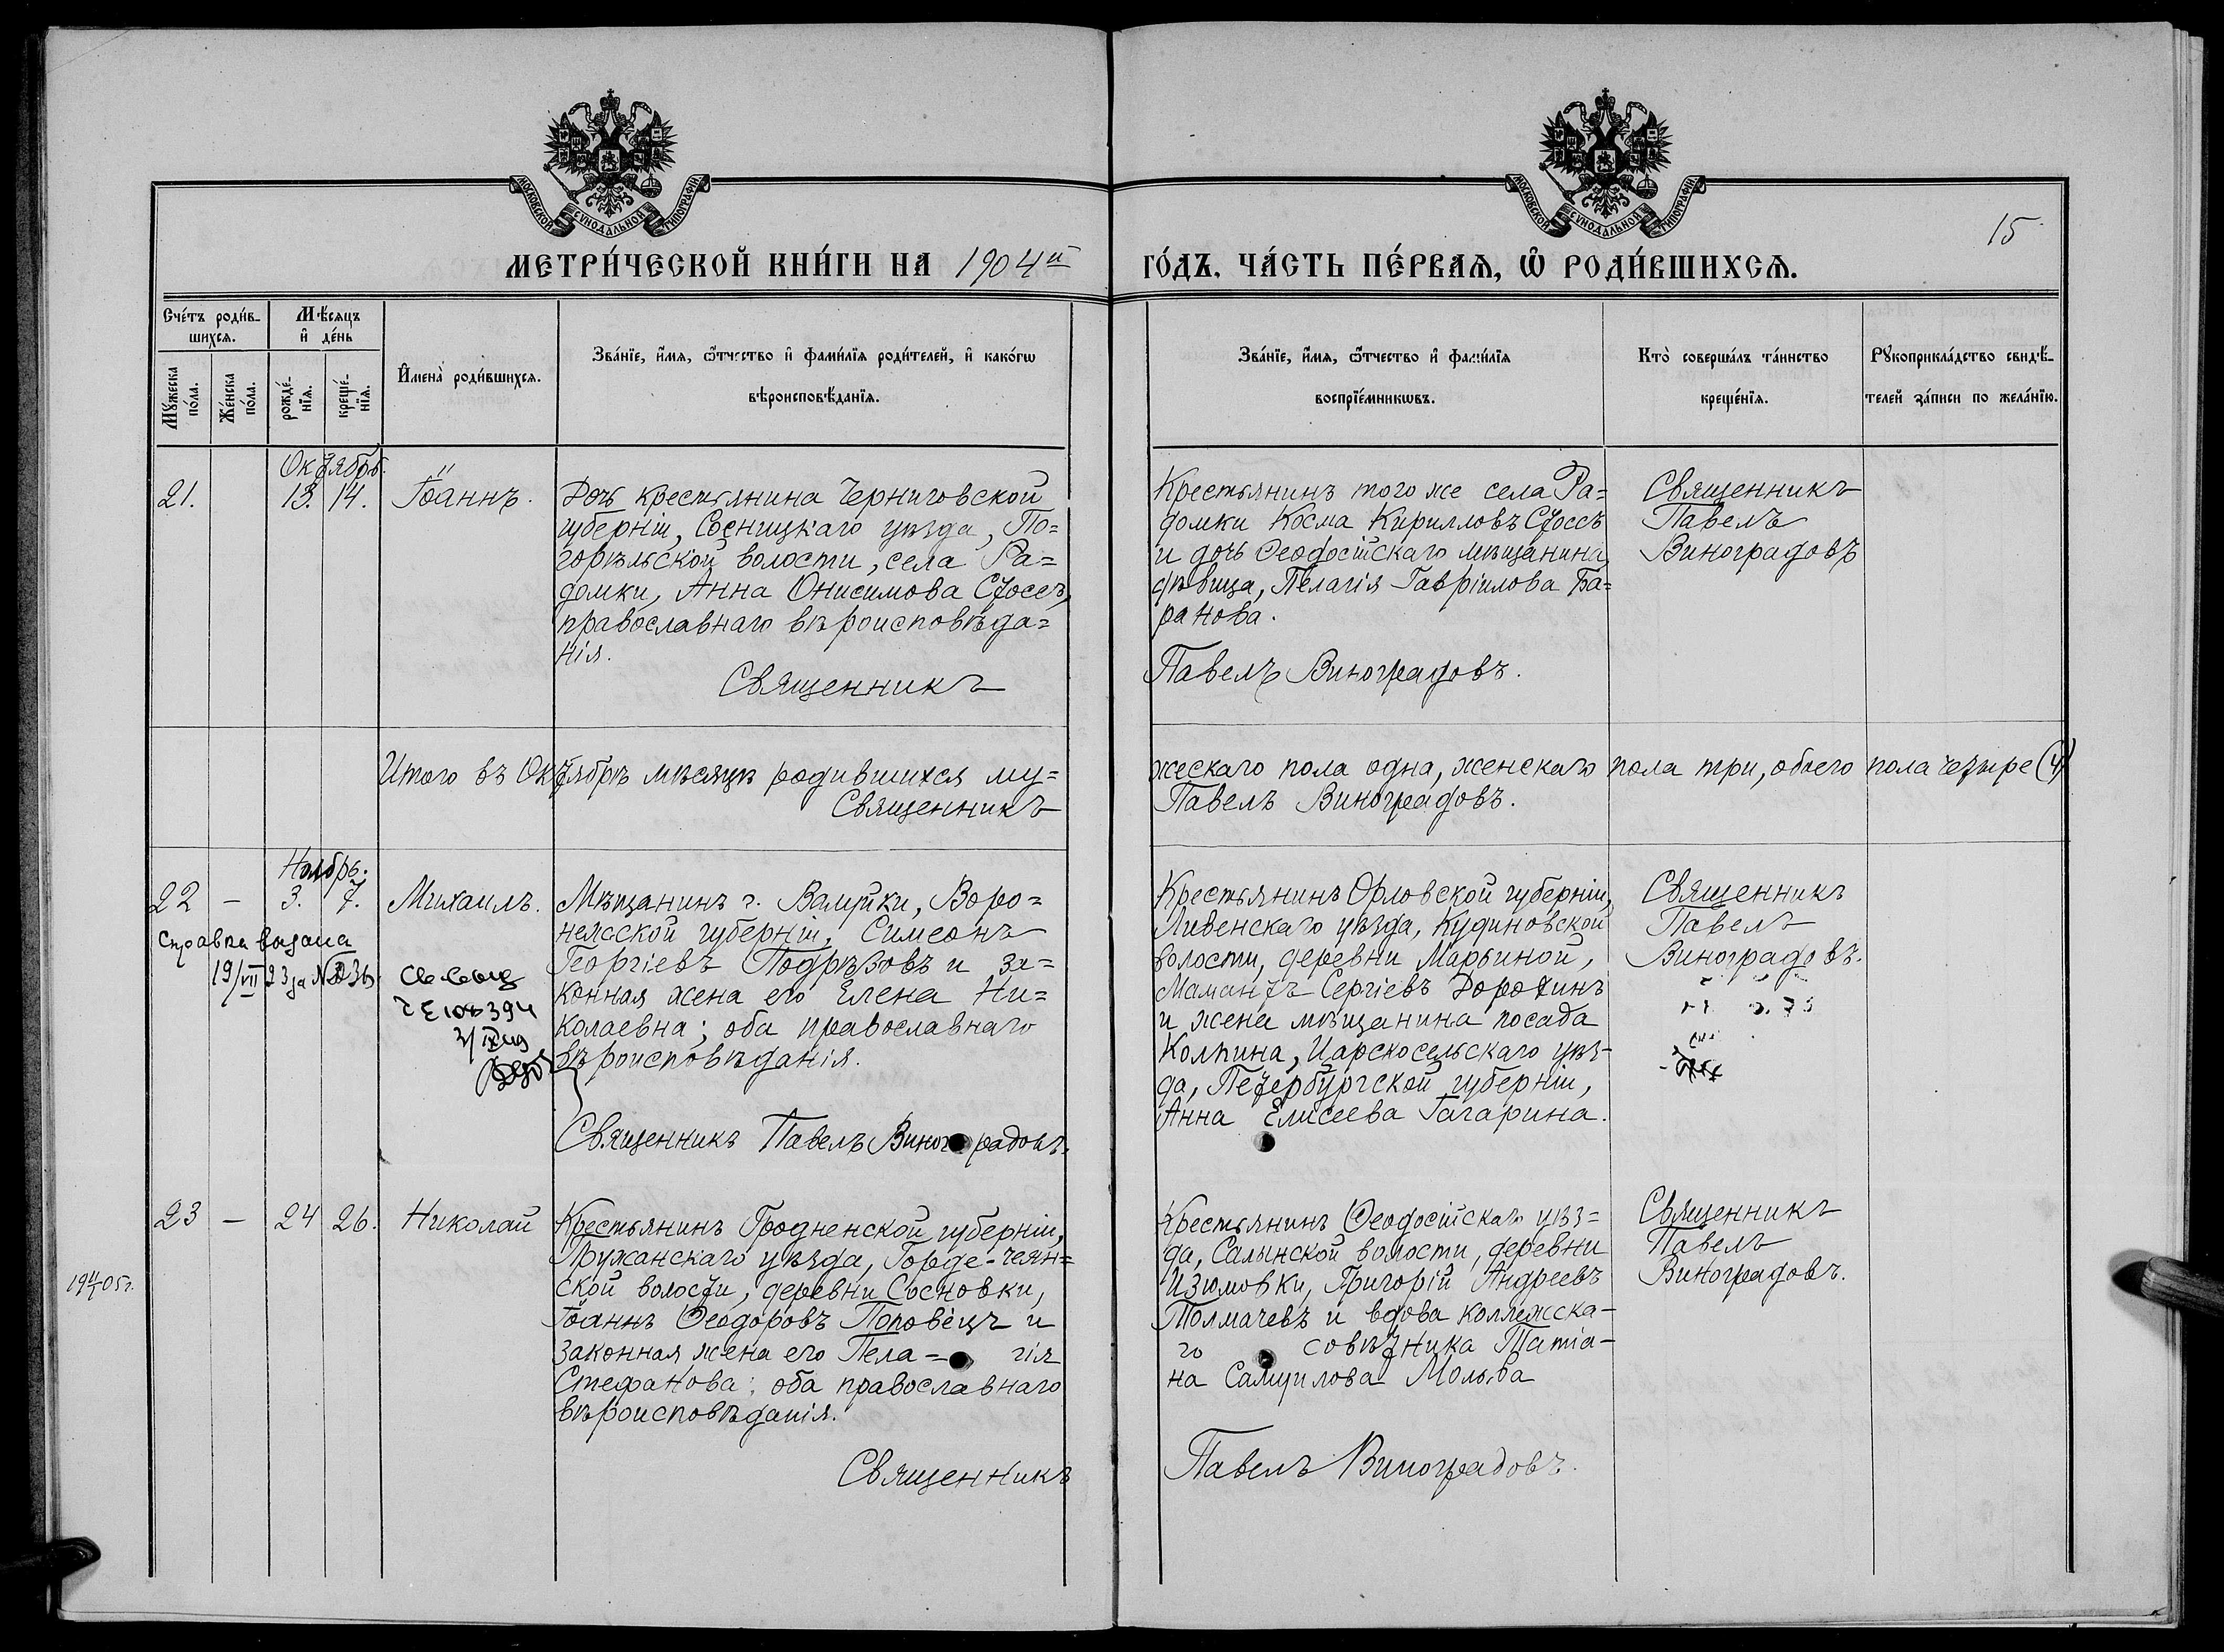 МОСКОВСКОЙ СѴНОДАЛЬНОЙ ТИПОГРАФІИ
МОСКОВСКОЙ СѴНОДАЛЬНОЙ ТИПОГРАФІИ
15
МЕТРИ́ЧЕСКОЙ КНИ́ГИ НА 1904й
ГО́ДЪ, ЧА́СТЬ ПЕ́РВАѦ, Ѽ РОДИ́ВШИХСѦ.
Сче́тъ роди́в-
шихсѧ.
Мꙋ́жеска по́ла.
Же́нска по́ла.
Мѣ́сѧцъ
и҆ де́нь
рожде́-
нїѧ.
креще́-
нїѧ.
И҆мена̀ роди́вшихсѧ.
Зва́нїе, и҆́мѧ, ѻ҆́тчество и҆ фами́лїѧ роди́телей, и҆ како́гѡ
вѣроисповѣ́данїѧ.
Зва́нїе, и҆́мѧ, ѻ҆́тчество и҆ фами́лїѧ
воспрїе́мникѡвъ.
Кто̀ соверша́лъ та́инство
креще́нїѧ.
Рꙋкоприкла́дство свидѣ́-
телей за́писи по жела́нїю.
Октябрь.
21.
13. 14.
Іоаннъ.
Дочь крестьянина Черниговской
губерніи, Сосницкаго уѣзда, По=
горѣльской волости, села Ра=
домки, Анна Онисимова Стосъ,
православнаго вѣроисповѣда=
нія.
Священникъ
Крестьянинъ того же села Ра=
домки Косма Кирилловъ Стоссъ
и дочь Ѳеодосійскаго мѣщанина
дѣвица, Пелагія Гавріилова Ба=
ранова.
Павелъ Виноградовъ.
Священникъ
Павелъ
Виноградовъ
Итого въ Октябрѣ мѣсяцѣ родившихся му=
Священникъ
жескаго пола одна, женскаго пола три, обоего пола четыре (4)
Павелъ Виноградовъ.
Ноябрь.
22 – 3. 7.
Михаилъ.
Справка выдана
19/VII 23 за №
Мѣщанинъ г. Валуйки, Воро=
нежской губерніи, Симеонъ
Георгіевъ Подрѣзовъ и за=
конная жена его Елена Ни=
колаевна; оба православнаго
вѣроисповѣданія.
Священникъ Павелъ Виноградовъ.
Крестьянинъ Орловской губерніи,
Ливенскаго уѣзда, Кудиновской
волости, деревни Марьиной,
Мамантъ Сергіевъ Дорохинъ
и жена мѣщанина посада
Колпина, Царскосельскаго уѣз-
да, Петербургской губерніи,
Анна Елисеева Гагарина.
Священникъ
Павелъ
Виноградовъ.
23 – 24 26.
Николай
Крестьянинъ Гродненской губерніи,
Пружанскаго уѣзда, Горде-чеян=
ской волости, деревни Сосновки,
Іоаннъ Ѳеодоровъ Поповецъ и
законная жена его Пела= гія
Стефанова; оба православнаго
вѣроисповѣданія.
Священникъ
Крестьянинъ Ѳеодосійскаго уѣз=
да, Салынской волости, деревни
Изюмовки, Григорій Андреевъ
Толмачевъ и вдова коллежска-
го совѣтника Татіа-
на Самуилова
Павелъ Виноградовъ.
Священникъ
Павелъ
Виноградовъ.